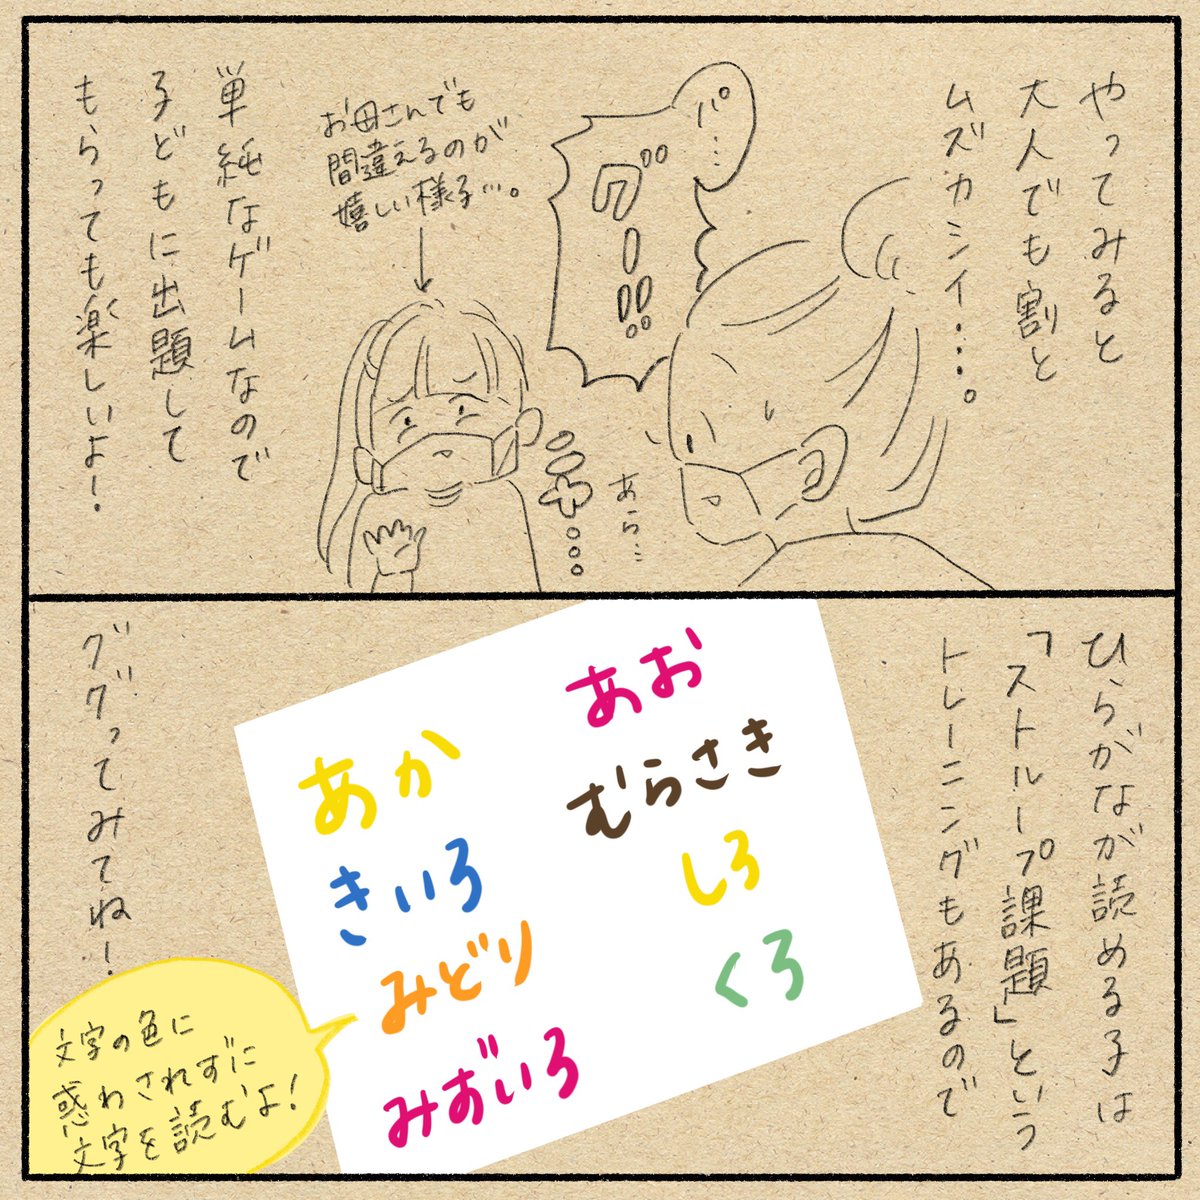 やってみると
大人でも割と
ムズカシイ・・・。
パ・・・
グー!!
お母さんでも
間違えるのが
嬉しい様子…。
あら…
単純なゲームなので
子どもに出題して
もらっても楽しいよ!
ひらがなが読める子は
「ストループ課題」という
トレーニングもあるので
あお
むらさき
しろ
くろ
あか
きいろ
みどり
みずいろ
文字の色に
惑わされずに
文字を読むよ!
ググってみてね!